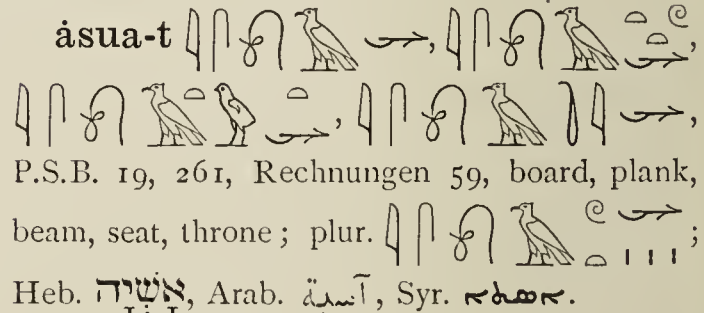 ȧsua-t 𓇋𓋴𓍯𓄿𓆱, 𓇋𓋴𓍯𓄿𓏏𓏲𓏏𓆱,
𓇋𓋴𓍯𓄿𓏏𓅱𓏏𓆱, 𓇋𓋴𓍯𓄿𓍘𓇋𓆱,
P.S.B. 19, 261, Rechnungen 59, board, plank,
beam, seat, throne; plur. 𓇋𓋴𓍯𓄿𓏲𓏏𓆱𓏥;
Heb. אשיה, Arab. آسية, Syr.